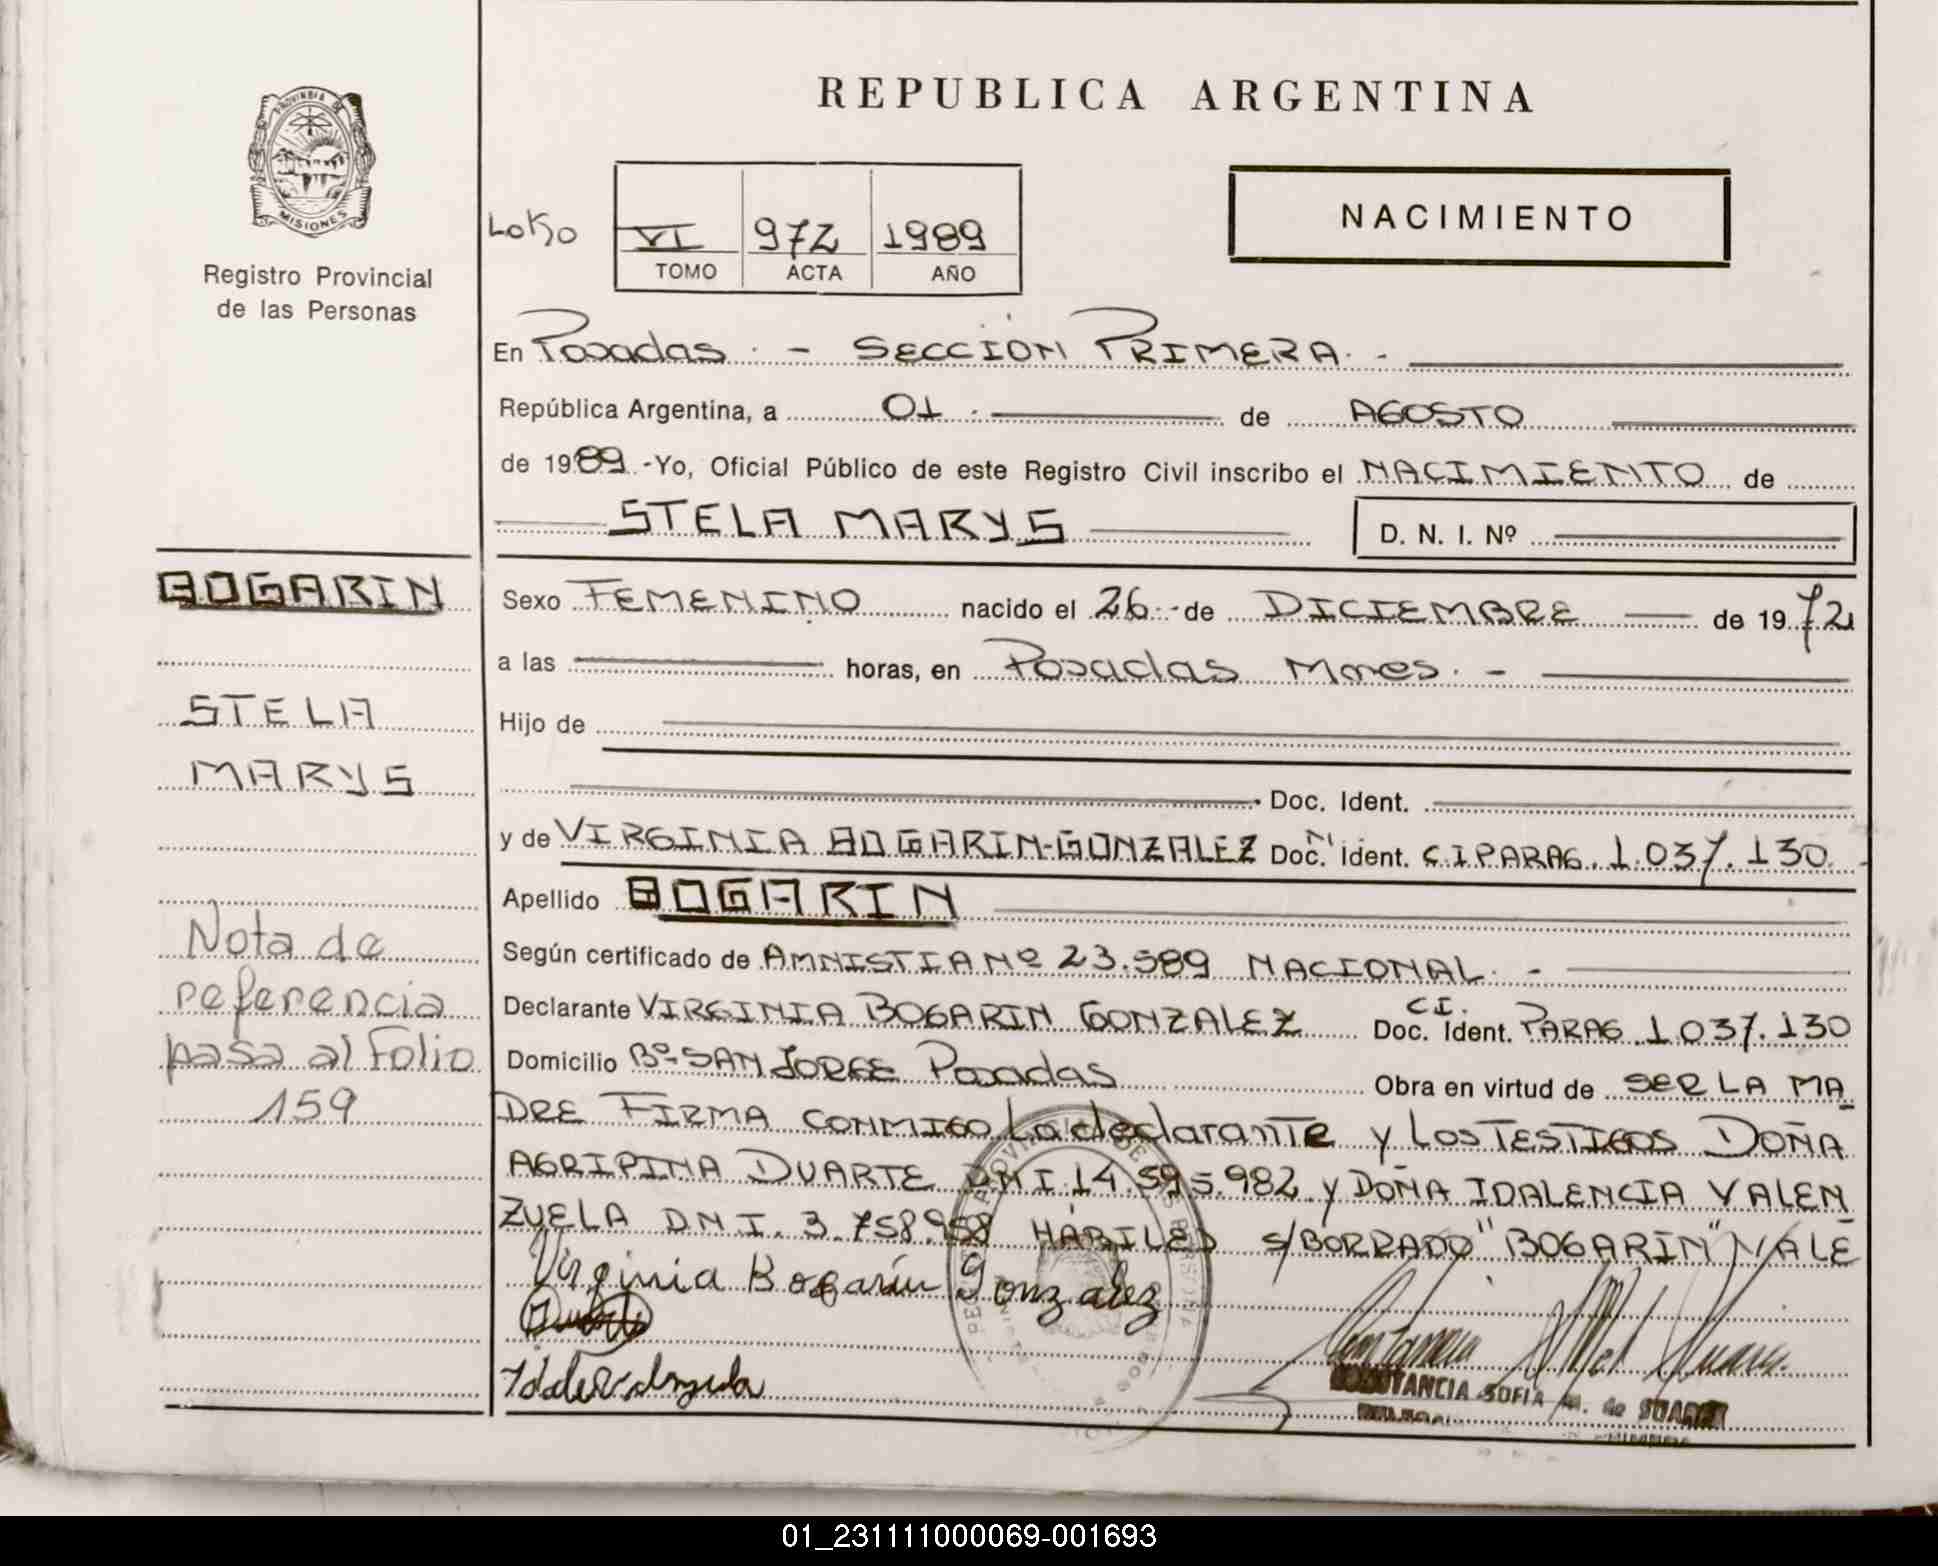 REPUBLICA ARGENTINA
PROVINCIA DE MISIONES
Registro Provincial
de las Personas
VI 972 1989
TOMO ACTA AÑO
NACIMIENTO
En Posadas. - SECCION PRIMERA. -
República Argentina, a 01. de AGOSTO
de 1989.-Yo, Oficial Público de este Registro Civil inscribo el NACIMIENTO de
STELA MARYS D. N. I. Nº
BOGARIN
STELA
MARYS
Nota de
referencia
pasa al Folio
159
Sexo FEMENINO nacido el 26.- de DICIEMBRE de 1972
a las horas, en Posadas Mnes. -
Hijo de
Doc. Ident.
y de VIRGINIA BOGARIN-GONZALEZ Doc. Ident. C I PARAG. 1.037.130.-
Apellido BOGARIN
Según certificado de AMNISTIA Nº 23.589 NACIONAL. -
Declarante VIRGINIA BOGARIN GONZALEZ Doc. Ident. C.I. PARAG 1.037.130
Domicilio Bº-SAN JORGE Posadas Obra en virtud de SER LA MA_
DRE FIRMA CONMIGO La declarante y LOS TESTIGOS DOÑA
AGRIPINA DUARTE DNI.14.595.982 y DOÑA IDALENCIA VALEN_
ZUELA DNI. 3.758.958 HABILES s/BORRADO "BOGARIN" VALE
Virginia Bogarín Gonzalez
CONSTANCIA SOFIA M. de SUAREZ
01_231111000069-001693